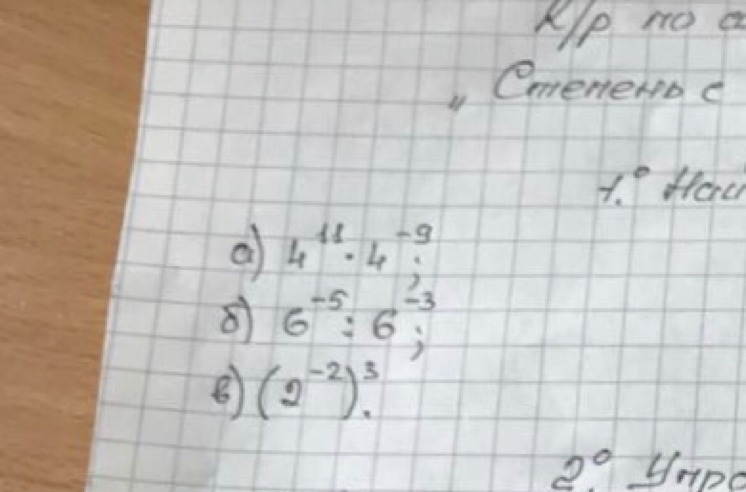 К/р по а
„ Степень с
1.° Най
а) 4¹¹ · 4⁻⁹ ;
б) 6⁻⁵ : 6⁻³ ;
в) (2⁻²)³ .
2.° Упро